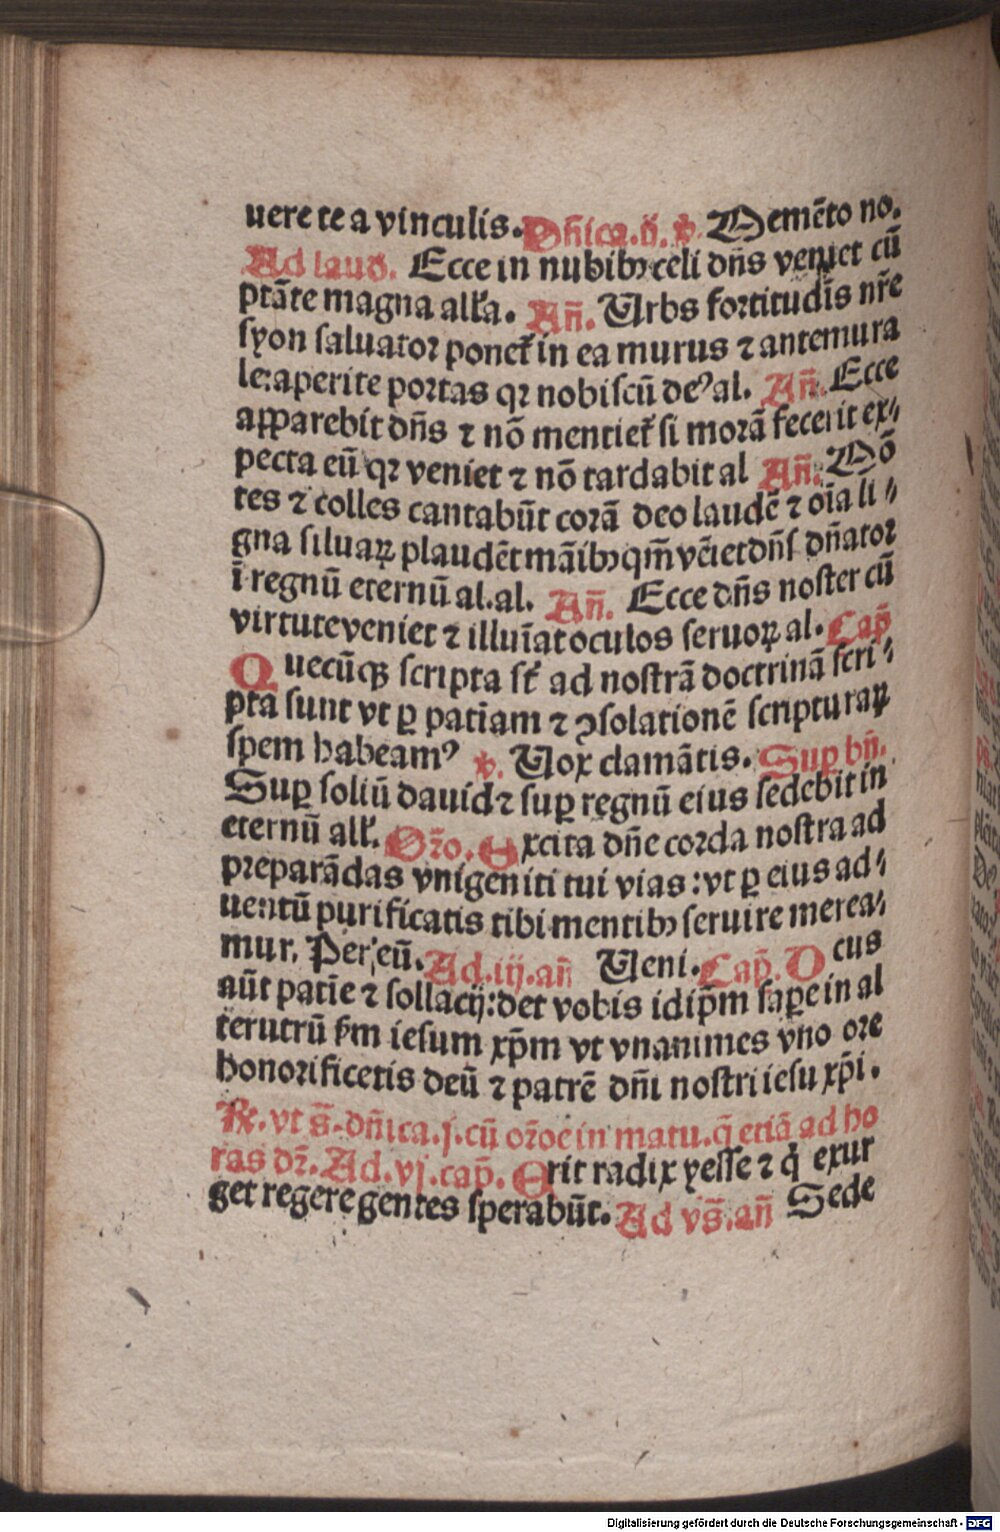 uere te a vinculis. Dn̄ica.ij. ℣. Memēto no.
Ad laud. Ecce in nubibꝫ celi dn̄s veniet cū
ptāte magna alľa. An̄. Urbs fortitudīs nr̄e
syon saluator ponet̉ in ea murus ⁊ antemura
le:aperite portas qꝛ nobiscū deꝰ al. An̄. Ecce
apparebit dn̄s ⁊ nō mentiet̉ si morā fecerit ex⸗
pecta eū qꝛ veniet ⁊ nō tardabit al An̄. Mō
tes ⁊ colles cantabūt corā deo laudē ⁊ oīa li⸗
gna siluaꝝ plaudēt māibꝫ qm̄ vēiet dn̄s dn̄ator
ī regnū eternū al.al. An̄. Ecce dn̄s noster cū
virtute veniet ⁊ illuīat oculos seruoꝝ al. Cap̄
Quecūqꝫ scripta st̄ ad nostrā doctrinā scri⸗
pta sunt vt ꝑ patīam ⁊ ꝯsolationē scripturaꝝ
spem habeamꝰ ℣. Uox clamātis. Suꝑ bn̄.
Suꝑ soliū dauid ⁊ suꝑ regnū eius sedebit in
eternū alľ. Or̄o. Excita dn̄e corda nostra ad
preparādas vnigeniti tui vias:vt ꝑ eius ad⸗
uentū purificatis tibi mentibꝫ seruire merea⸗
mur. Per eū. Ad.iij.an̄ Ueni. Cap̄. Deus
aūt patīe ⁊ sollacij:det vobis idip̄m saꝑe in al
terutrū ẜm iesum xp̄m vt vnanimes vno ore
honorificetis deū ⁊ patrē dn̄i nostri iesu xp̄i.
℟. vt s̄. dn̄ica.j.cū or̄oe in matu.q̄ etiā ad ho
ras dr̄. Ad.vj.cap̄. Erit radix yesse ⁊ q̇ exur
get regere gentes sperabūt. Ad vs̄.an̄ Sede
Digitalisierung gefördert durch die Deutsche Forschungsgemeinschaft - DFG